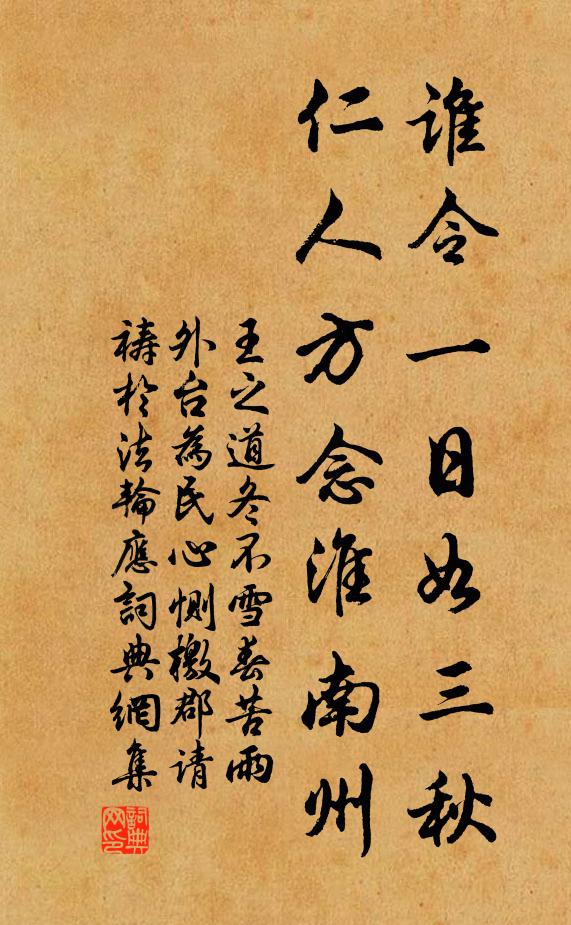 誰令一日如三秋
仁人方念淮南州
王之道冬不雪春苦雨
外台為民心惻檄郡请
禱於法輪應詞典網集
詞典网印